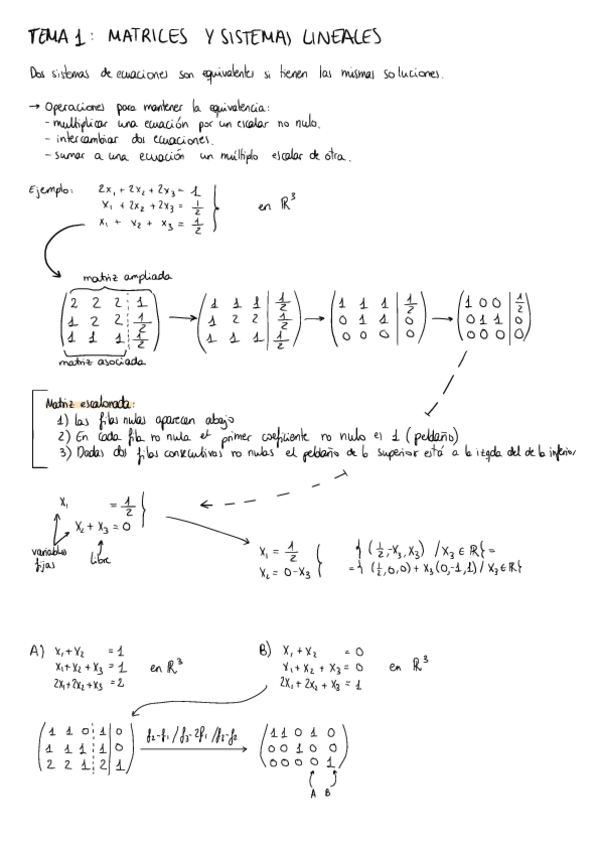 TEMA 1: MATRICES Y SISTEMAS LINEALES
Dos sistemas de ecuaciones son equivalentes si tienen las mismas soluciones.
→ Operaciones para mantener la equivalencia:
- multiplicar una ecuación por un escalar no nulo.
- intercambiar dos ecuaciones.
- sumar a una ecuación un múltiplo escalar de otra.
Ejemplo: 2x₁ + 2x₂ + 2x₃ = 1
x₁ + 2x₂ + 2x₃ = 1/2 en ℝ³
x₁ + x₂ + x₃ = 1/2
matriz ampliada
2 2 2 1 → 1 1 1 1/2 → 1 1 1 1/2 → 1 0 0 1/2
1 2 2 1/2 1 2 2 1/2 0 1 1 0 0 1 1 0
1 1 1 1/2 1 1 1 1/2 0 0 0 0 0 0 0 0
matriz asociada
Matriz escalonada:
1) Las filas nulas aparecen abajo
2) En cada fila no nula el primer coeficiente no nulo es 1 (peldaño)
3) Dadas dos filas consecutivas no nulas el peldaño de la superior está a la izqda del de la inferior
x₁ = 1/2
x₂ + x₃ = 0
variables fijas
libre
x₁ = 1/2 { (1/2, -x₃, x₃) / x₃ ∈ ℝ } =
x₂ = 0 - x₃ = { (1/2, 0, 0) + x₃ (0, -1, 1) / x₃ ∈ ℝ }
A) x₁ + x₂ = 1 B) x₁ + x₂ = 0
x₁ + x₂ + x₃ = 1 en ℝ³ x₁ + x₂ + x₃ = 0 en ℝ³
2x₁ + 2x₂ + x₃ = 2 2x₁ + 2x₂ + x₃ = 1
1 1 0 1 0 f₂-f₁ / f₃-2f₁ / f₃-f₂ 1 1 0 1 0
1 1 1 1 0 0 0 1 0 0
2 2 1 2 1 0 0 0 0 1
A B